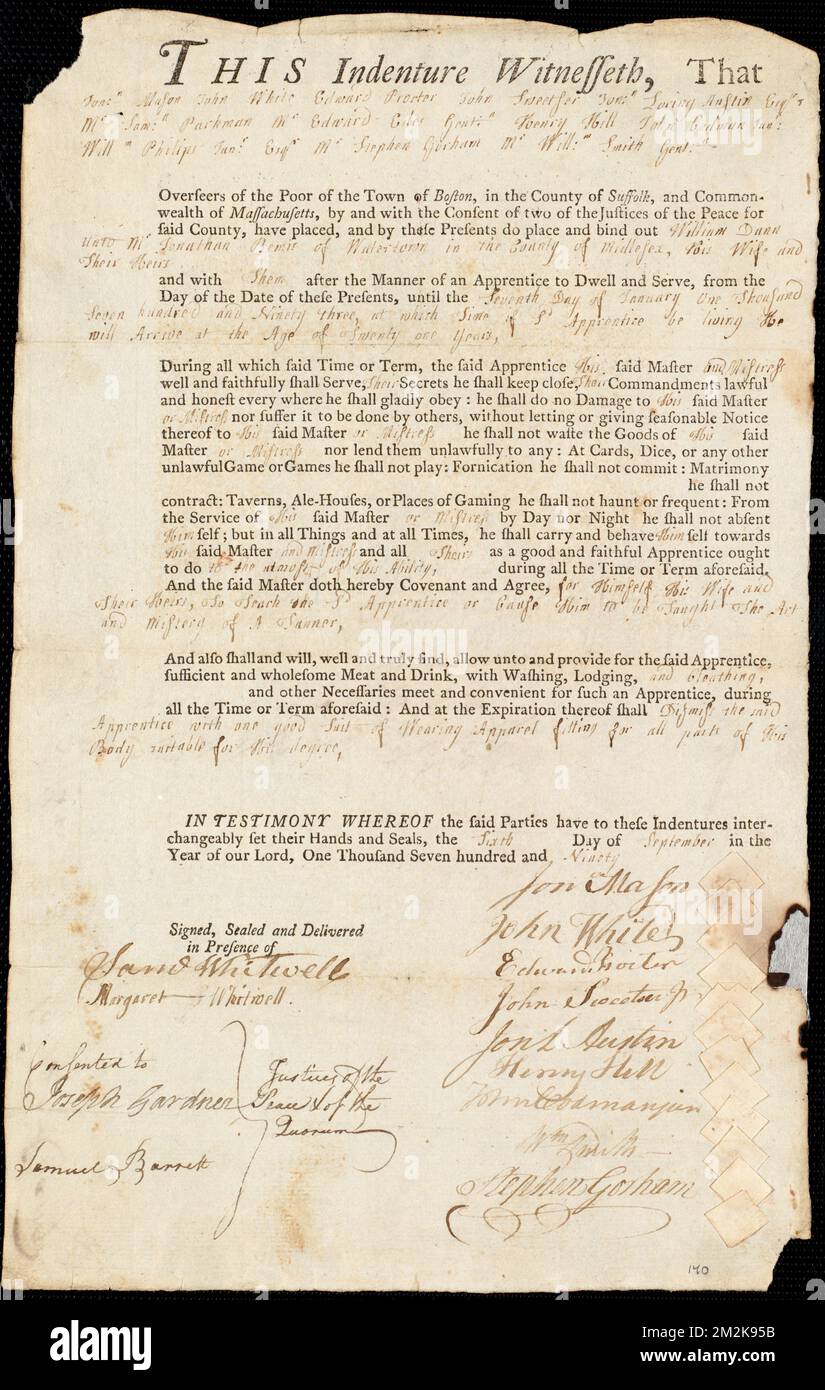 THIS Indenture Witneſſeth, That
Jon.ⁿ Mason John White Edward Procter John Sweetser Jon.ⁿ Loring Austin Esqʳˢ
Mʳ Sam.ˡˡ Parkman Mʳ Edward Edes Gent.ⁿ Henry Hill John Codman Junʳ
Will.ᵐ Philips Junʳ Esqʳ Mʳ Stephen Gorham Mʳ Will.ᵐ Smith Gent.
Overſeers of the Poor of the Town of Boſton, in the County of Suffolk, and Common-
wealth of Maſſachuſetts, by and with the Conſent of two of the Juſtices of the Peace for
ſaid County, have placed, and by theſe Preſents do place and bind out William Dann
unto Mʳ Jonathan Bemis of Watertown in the County of Midlesex, His Wife and
Their Heirs
and with Them after the Manner of an Apprentice to Dwell and Serve, from the
Day of the Date of theſe Preſents, until the Seventh Day of January One Thousand
Seven hundred and Ninety three, at which Time if Sᵈ Apprentice be living He
will Arrive at the Age of Twenty one Years,
During all which ſaid Time or Term, the ſaid Apprentice His ſaid Maſter and Mistress
well and faithfully ſhall Serve, Their Secrets he ſhall keep cloſe, Their Commandments lawful
and honeſt every where he ſhall gladly obey : he ſhall do no Damage to His ſaid Maſter
or Mistress nor ſuffer it to be done by others, without letting or giving ſeaſonable Notice
thereof to His ſaid Maſter or Mistress he ſhall not waſte the Goods of His ſaid
Maſter or Mistress nor lend them unlawfully to any : At Cards, Dice, or any other
unlawful Game or Games he ſhall not play: Fornication he ſhall not commit : Matrimony
he ſhall not
contract: Taverns, Ale-Houſes, or Places of Gaming he ſhall not haunt or frequent : From
the Service of His ſaid Maſter or Mistress by Day nor Night he ſhall not abſent
Him ſelf; but in all Things and at all Times, he ſhall carry and behave Him ſelf towards
His ſaid Maſter and Mistress and all Theirs as a good and faithful Apprentice ought
to do to the utmost of His Ability, during all the Time or Term aforeſaid.
And the ſaid Maſter doth hereby Covenant and Agree, for Himself His Wife and
Their Heirs, To Teach the Sᵈ Apprentice or Cause Him to be Taught The Art
and Mistery of A Tanner,
And alſo ſhall and will, well and truly find, allow unto and provide for the ſaid Apprentice,
ſufficient and wholeſome Meat and Drink, with Waſhing, Lodging, and Cloathing,
and other Neceſſaries meet and convenient for ſuch an Apprentice, during
all the Time or Term aforeſaid : And at the Expiration thereof ſhall Dismiss the said
Apprentice with one good Suit of Wearing Apparel fitting for all parts of His
Body suitable for His degree,
IN TESTIMONY WHEREOF the ſaid Parties have to theſe Indentures inter-
changeably ſet their Hands and Seals, the Sixth Day of September in the
Year of our Lord, One Thouſand Seven hundred and Ninety
Jon Mason
John White
Edward Procter
John Sweetser Jr
Jon L Austin
Henry Hill
John Codman jun
Wm Smith
Stephen Gorham
Signed, Sealed and Delivered
in Preſence of
Samˡ Whitwell
Margaret Whitwell.
Consented to
Joseph Gardner
Samuel Barrett
Justices of the
Peace & of the
Quorum
140
alamy
Image ID: 2M2K95B
www.alamy.com